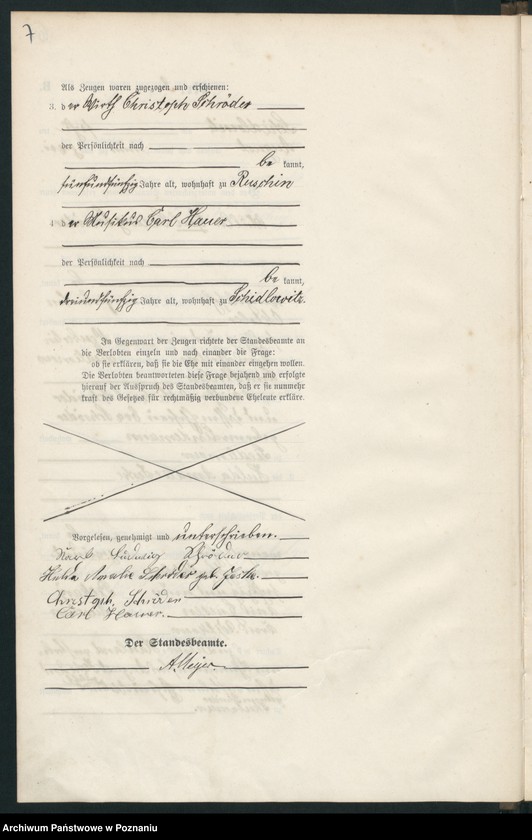 7
Als Zeugen waren zugezogen und erschienen:
3. der Wirth Christoph Schröder
der Persönlichkeit nach
be kannt,
fünfundfünfzig Jahre alt, wohnhaft zu Ruschin
4 der Musikus Carl Hauer
der Persönlichkeit nach
be kannt,
dreiundfünfzig Jahre alt, wohnhaft zu Schidlowitz.
In Gegenwart der Zeugen richtete der Standesbeamte an
die Verlobten einzeln und nach einander die Frage:
ob sie erklären, daß sie die Ehe mit einander eingehen wollen.
Die Verlobten beantworteten diese Frage bejahend und erfolgte
hierauf der Ausspruch des Standesbeamten, daß er sie nunmehr
kraft des Gesetzes für rechtmäßig verbundene Eheleute erkläre.
Vorgelesen, genehmigt und unterschrieben.
Ludwig Schröder
Amalie Schröder geb.
Christoph Schröder
Carl Hauer.
Der Standesbeamte.
A. Meyer.
Archiwum Państwowe w Poznaniu